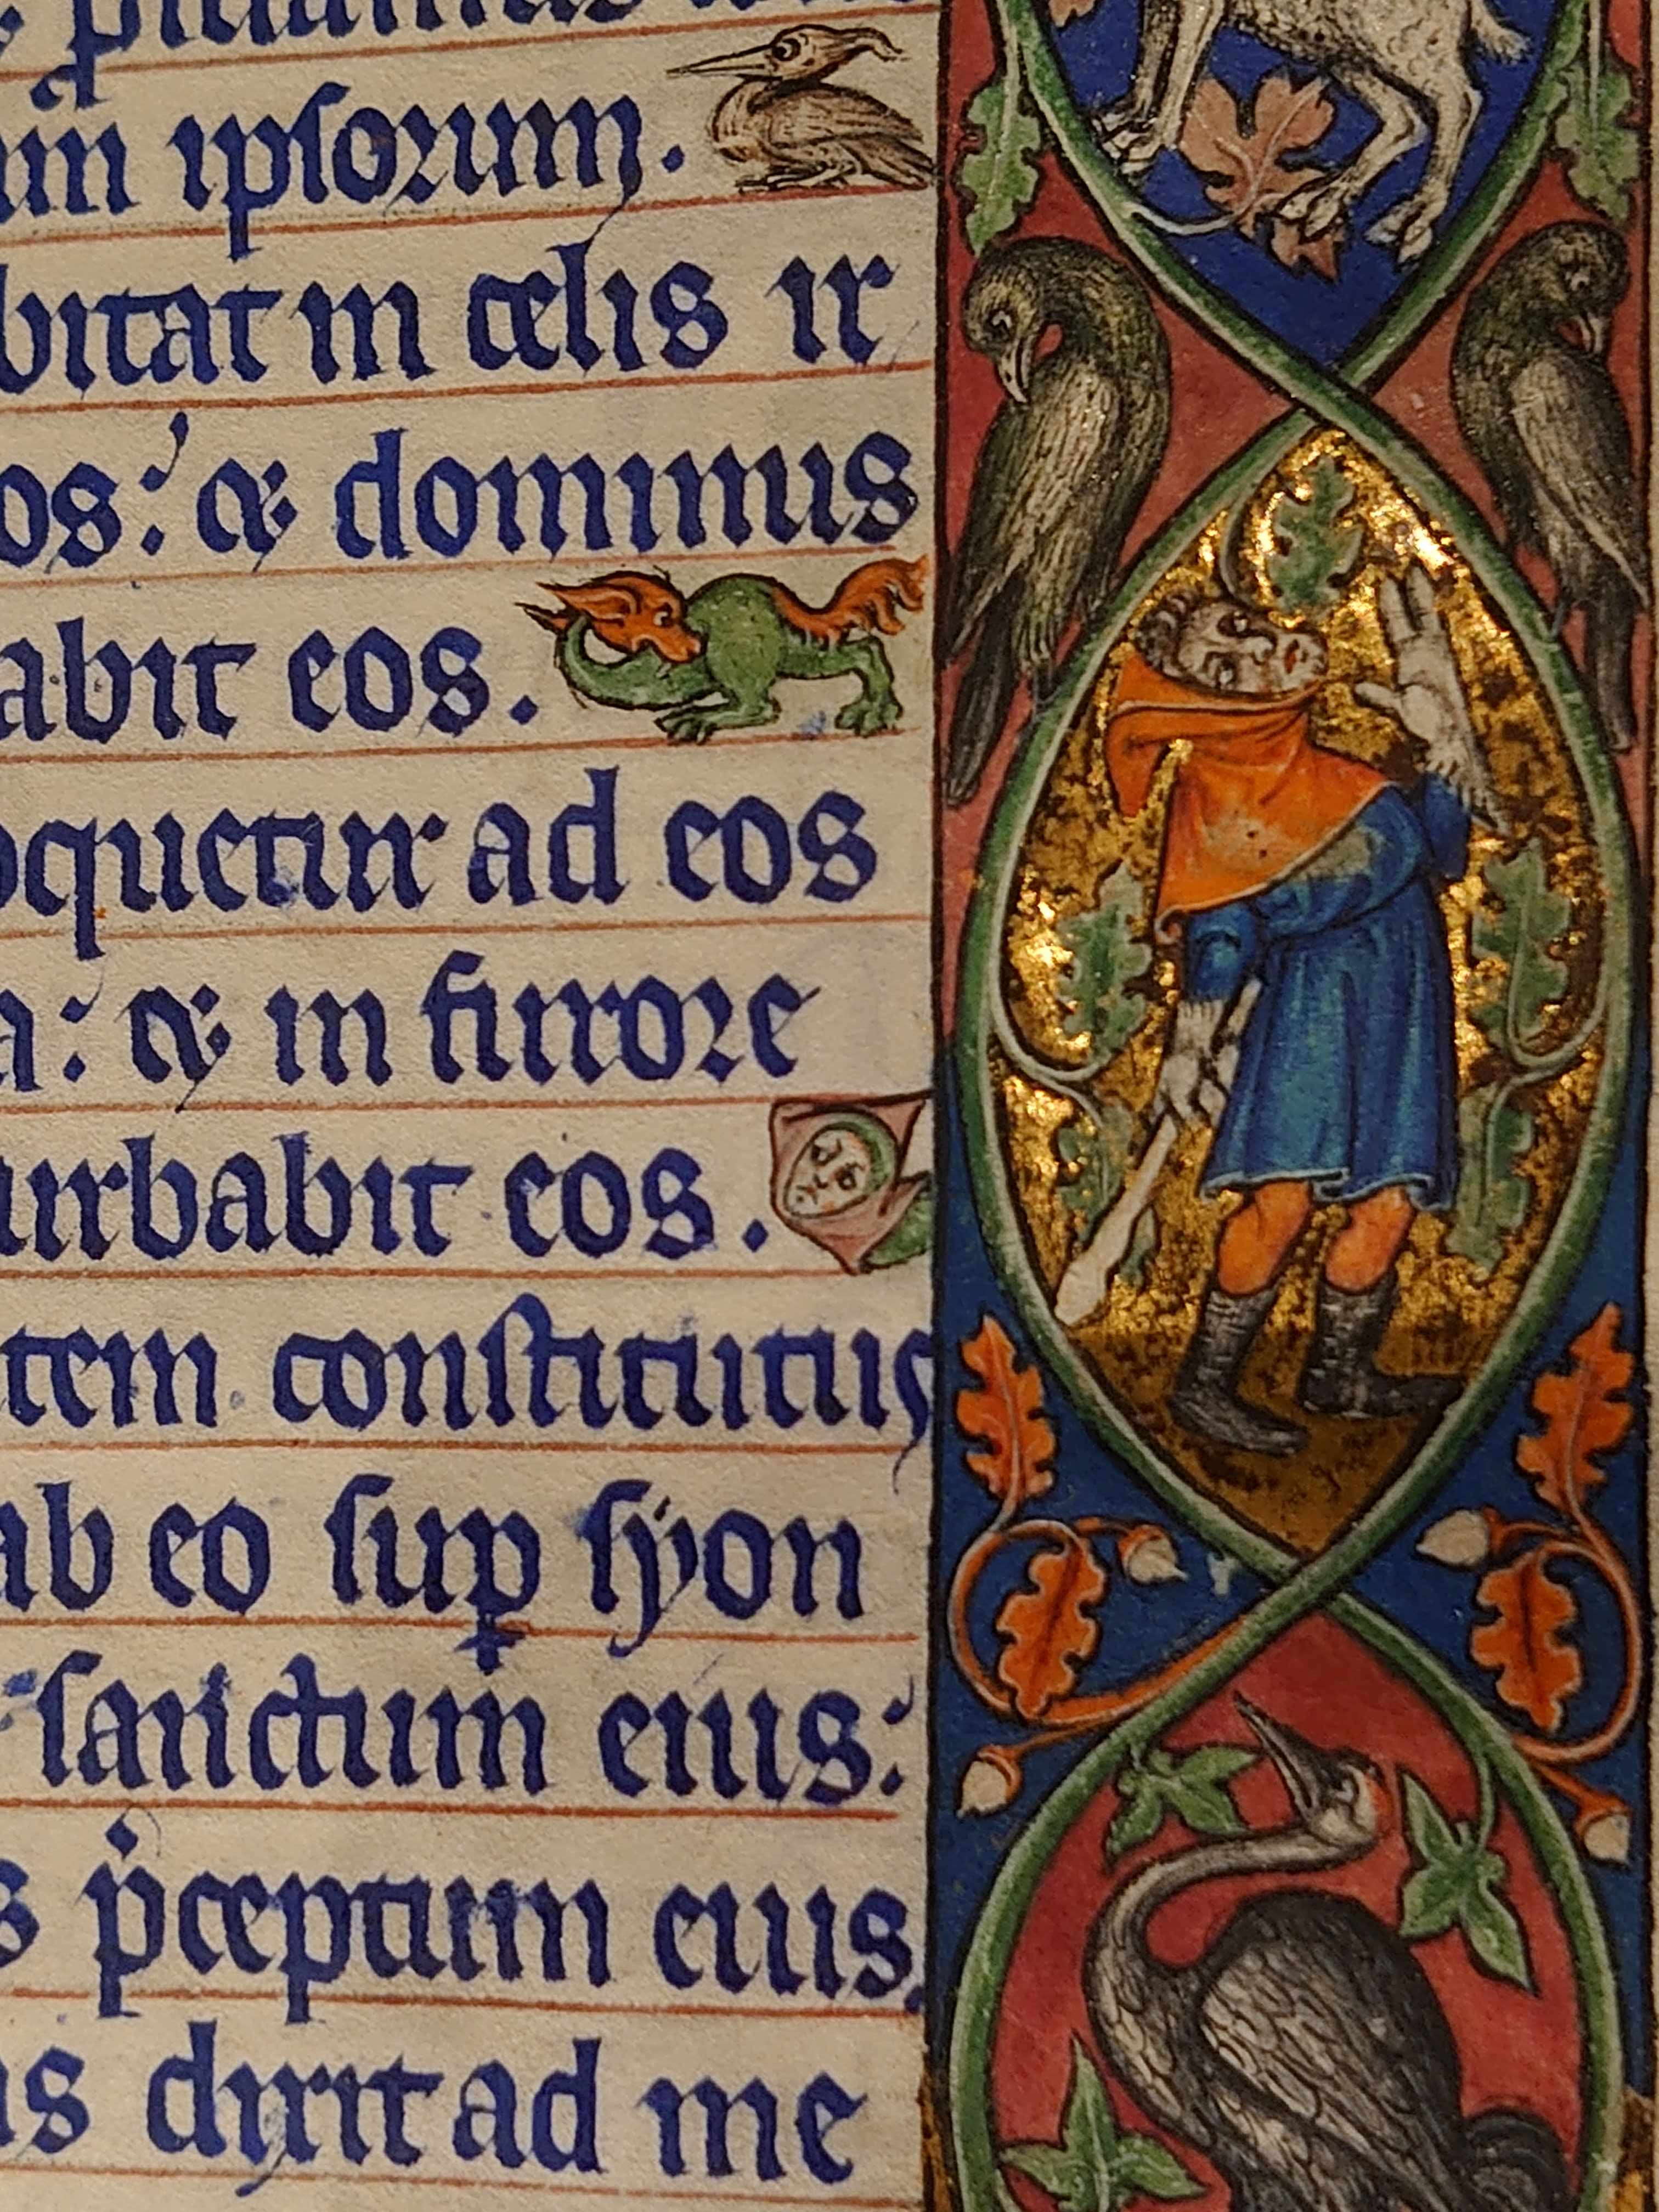 ipsorum.
bitat in celis ir
os: & dominus
abit eos.
oquetur ad eos
a: & in furore
urbabit eos.
tem constitutus
ab eo sup syon
sanctum eius:
s pceptum eius
us dixit ad me